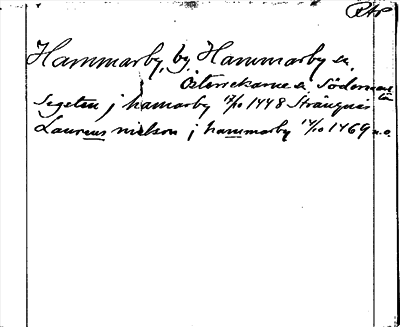 Rtp
Hammarby, by, Hammarby sn,
Österrekarne h Söderman
land
Segsten j hamarby 17/10 1448 Strängnäs
Laurens nielson j hammarby 17/10 1469 u.o.